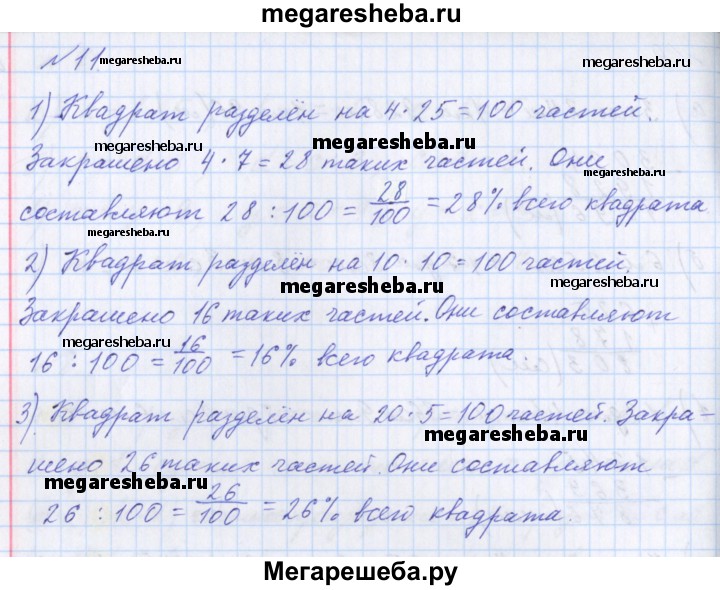 megaresheba.ru
№11 megaresheba.ru
megaresheba.ru
1) Квадрат разделён на 4·25=100 частей.
megaresheba.ru
Закрашено 4·7=28 таких частей. Они
megaresheba.ru
составляют 28:100=28/100=28% всего квадрата
megaresheba.ru
2) Квадрат разделён на 10·10=100 частей.
megaresheba.ru
Закрашено 16 таких частей. Они составляют
megaresheba.ru
16:100=16/100=16% всего квадрата.
3) Квадрат разделён на 20·5=100 частей. Закра-
megaresheba.ru
шено 26 таких частей. Они составляют
megaresheba.ru
26:100=26/100=26% всего квадрата.
megaresheba.ru
Мегарешеба.ру